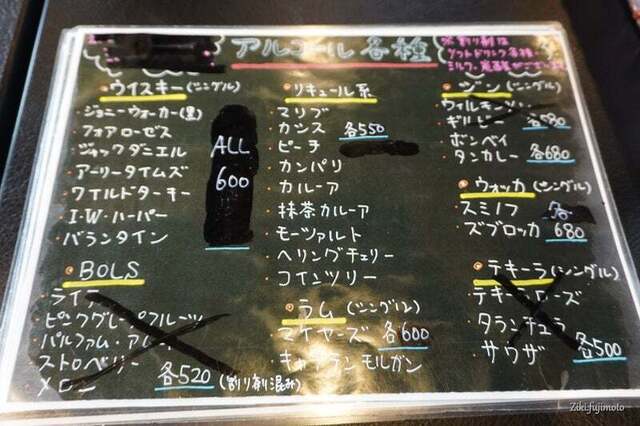 アルコール各種
※割り剤は
ソフトドリンク各種
ミルク、炭酸がございます
ウイスキー(シングル)
・ジョニーウォーカー(黒)
・フォアローゼス
・ジャックダニエル
・アーリータイムズ
・ワイルドターキー
・I.W.ハーパー
・バランタイン
ALL
600
BOLS
・ライチ
・ピンクグレープフルーツ
・パルファム・アムール
・ストロベリー
・メロン 各520(割り剤混み)
リキュール系
・マリブ
・カシス 各550
・ピーチ
・カンパリ
・カルーア
・抹茶カルーア
・モーツァルト
・ヘリングチェリー
・コインツリー
ラム(シングル)
・マイヤーズ 各600
・キャプテンモルガン
ジン(シングル)
・ウィルキンソン
・ギルビー 各580
・ボンベイ
・タンカレー 各680
ウォッカ(シングル)
・スミノフ 各
・ズブロッカ 680
テキーラ(シングル)
・テキーラローズ
・タランチュラ
・サウザ 各500
Ziki.fujimoto